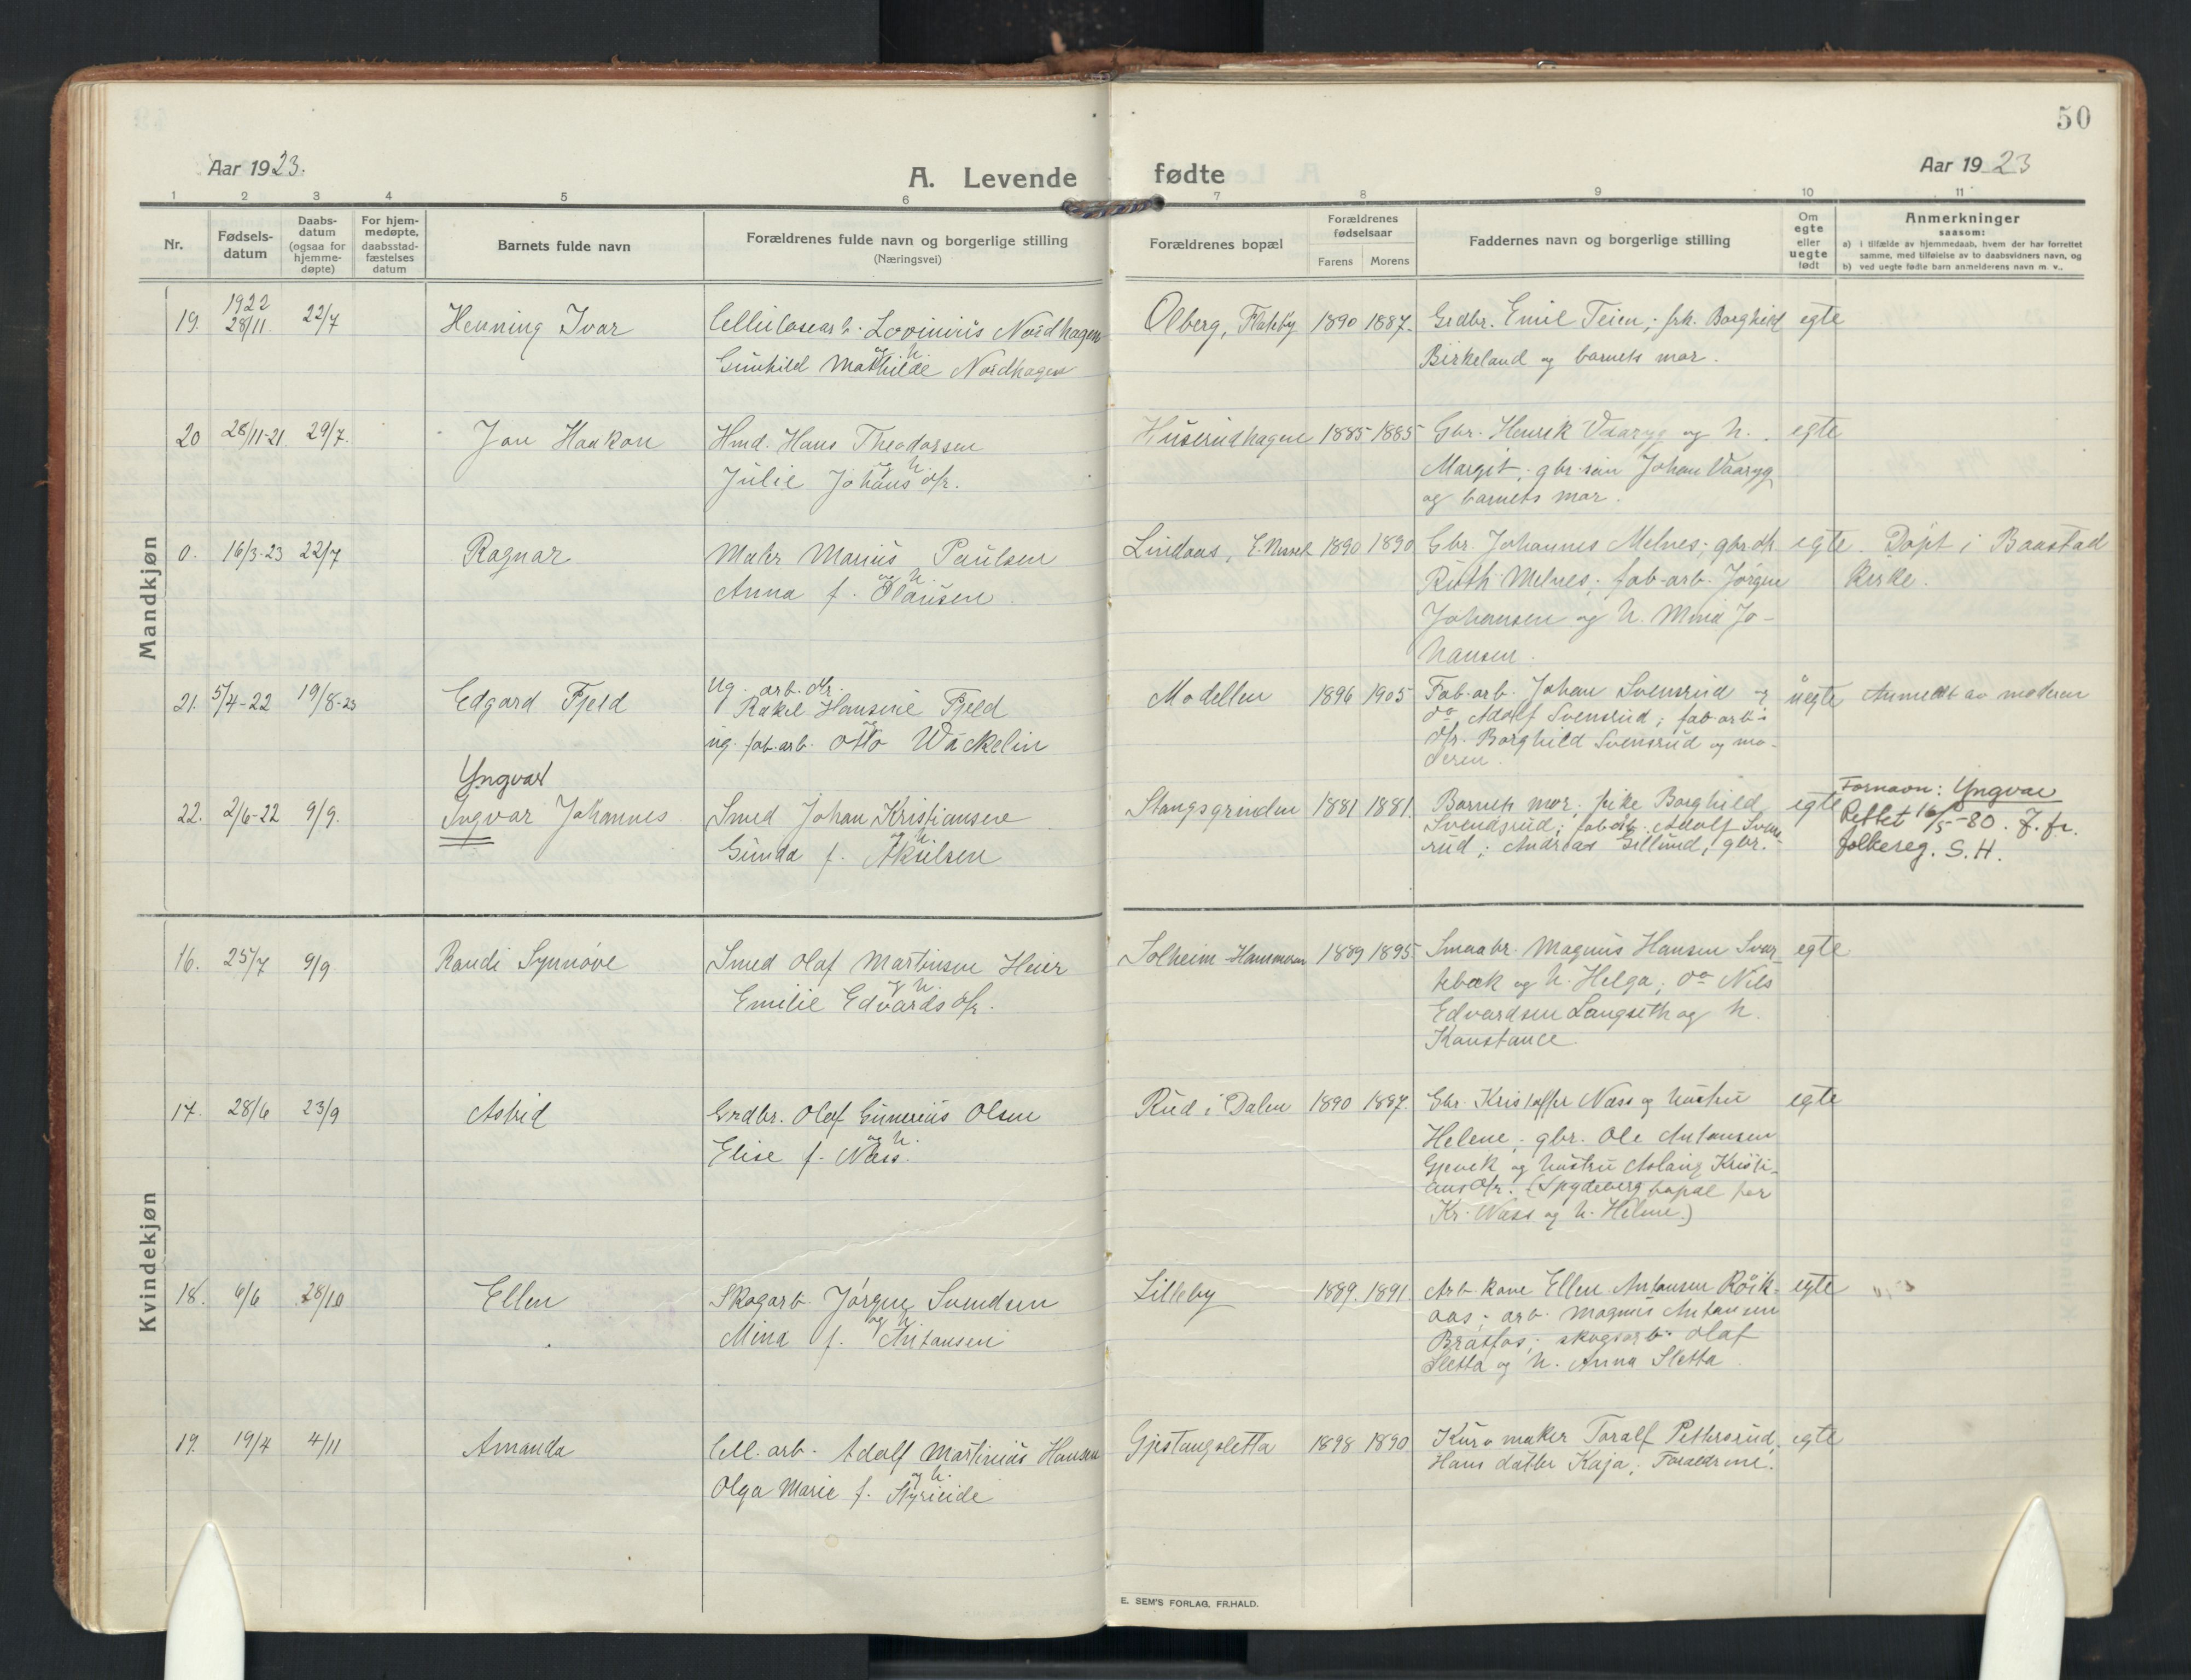 50
Aar 1923.
A. Levende fødte
Aar 1923
1 2 3 4 5 6 7 8 9 10 11
Nr.
Fødsels-
datum
Daabs-
datum
(ogsaa for
hjemme-
døpte)
For hjem-
medøpte,
daabsstad-
fæstelses
datum
Barnets fulde navn
Forældrenes fulde navn og borgerlige stilling
(Næringsvei)
Forældrenes bopæl
Forældrenes
fødselsaar
Farens Morens
Faddernes navn og borgerlige stilling
Om
egte
eller
uegte
født
Anmerkninger
saasom:
a) i tilfælde av hjemmedaab, hvem der har forrettet
samme, med tilføielse av to daabsvidners navn, og
b) ved uegte fødte barn anmelderens navn m. v.,
Mandkjøn
19. 1922 28/11. 22/7 Henning Ivar
Cellulosearb. Lovinius Nordhagen
og h.
Gunhild Mathilde Nordhagen
Olberg, Flateby 1890 1887.
Grdbr. Emil Teien; frk. Borghild
Birkeland og barnets mor.
egte
20 28/11-21. 29/7. Jon Haakon
Hmd. Hans Theodorsen
og h.
Julie Johansdtr.
Huserudhagen 1885 1885
Gbr. Henrik Vaaryg og h.
Margit; gbr. søn Johan Vaaryg
og barnets mor.
egte
0. 16/3-23 22/7 Ragnar
Marius Paulsen
og h.
Anna f. Olausen.
Lindaas, 1890 1890
Gbr. Johannes Melnes; gbr.dtr.
Ruth Melnes; fab-arb. Jørgen
Johansen og h. Mina Jo-
hansen.
egte. Døpt i Baastad
Kirke.
21. 5/4-22 19/8-23 Edgard Fjeld
Ug. arb. dtr.
Rakel Hansine Fjeld
og
ug. fab. arb. Otto Wäckelin
Modellen 1896 1905
Fab-arb. Johan Svensrud og
do Adolf Svensrud; fab-arb.s
dtr. Borghild Svensrud og mo-
deren.
uegte Anmeldt av moderen
Yngvar
22. 2/6-22 9/9. Ingvar Johannes
Smed Johan Kristiansen
og h.
Gunda f. Akselsen
Stangsgrinden 1881 1881.
Barnets mor; pike Borghild
Svendsrud; fab. arb. Adolf Svens-
rud; Andreas Gillund, gbr.
egte
Fornavn: Yngvar
Rettet 16/5-80. J. fr.
folkereg. S. H.
Kvindekjøn
16. 25/7 9/9 Randi Synnøve
Smed Olaf Martinsen Heier
og h.
Emilie Edvardsdtr.
Solheim 1889 1895
Smaabr. Magnus Hansen Svar-
tebæk og h. Helga; do Nils
Edvardsen Langseth og h.
Konstance.
egte
17. 28/6 23/9 Astrid
Grdbr. Olaf Gunerius Olsen
og h.
Elise f. Næss.
Rud i Dalen 1890 1887.
Gbr. Kristoffer Næss og hustru
Helene; gbr. Ole Antonsen
og hustru Aslaug Kristi-
ansdtr. (Spydeberg bopæl for
Kr. Næss og h. Helene.)
egte
18. 6/6 28/10 Ellen
Skogarb. Jørgen Svendsen
og h.
Mina f. Antonsen
Lilleby 1889. 1891
Arb. kone Ellen Antonsen Røik-
aas; arb. Magnus Antonsen
Braatfos; skogsarb. Olaf
Sletta og h. Anna Sletta.
egte
19. 19/4 4/11 Amanda
Cell. arb. Adolf Martinius Hansen
og h.
Olga Marie f.
Gjestangsletta 1898 1890
Kurvmaker Toralf Pettersrud.
Hans datter Kaja; Forældrene.
egte
E. SEM'S FORLAG, FR.HALD.